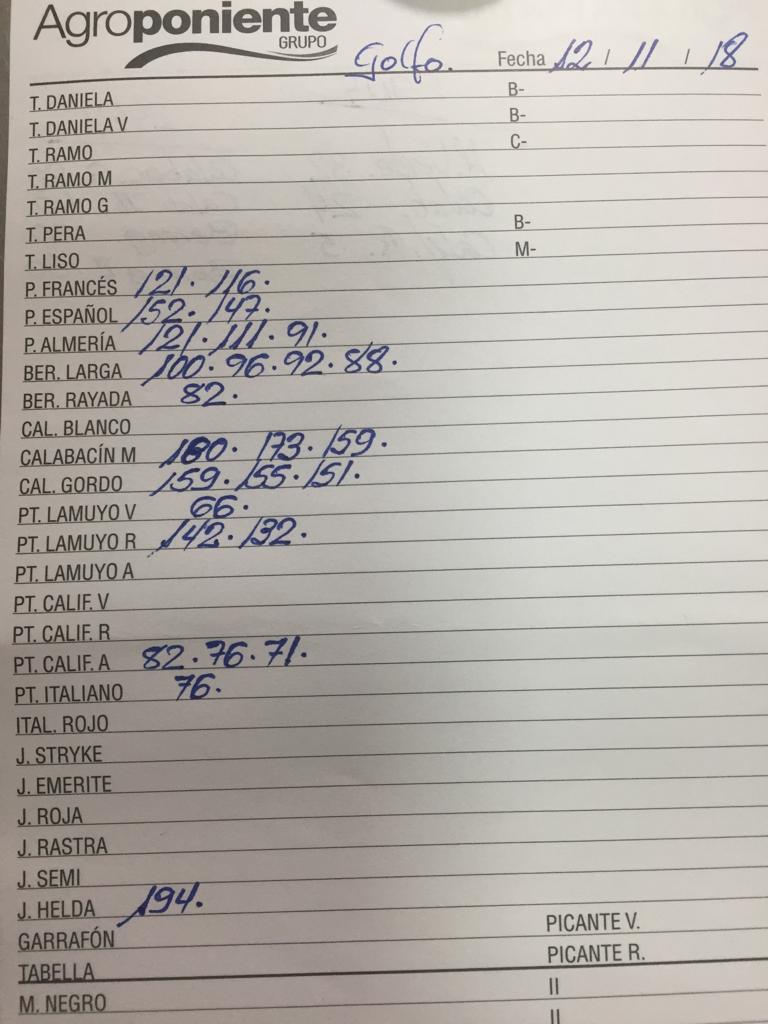 Agroponiente
GRUPO
Golfo. Fecha 12 / 11 / 18
T. DANIELA B-
T. DANIELA V B-
T. RAMO C-
T. RAMO M
T. RAMO G
T. PERA B-
T. LISO M-
P. FRANCÉS 121. 116.
P. ESPAÑOL 152. 147.
P. ALMERÍA 121. 111. 91.
BER. LARGA 100. 96. 92. 88.
BER. RAYADA 82.
CAL. BLANCO
CALABACÍN M 180. 173. 159.
CAL. GORDO 159. 155. 151.
PT. LAMUYO V 66.
PT. LAMUYO R 142. 132.
PT. LAMUYO A
PT. CALIF. V
PT. CALIF. R
PT. CALIF. A 82. 76. 71.
PT. ITALIANO 76.
ITAL. ROJO
J. STRYKE
J. EMERITE
J. ROJA
J. RASTRA
J. SEMI
J. HELDA 194.
GARRAFÓN PICANTE V.
TABELLA PICANTE R.
M. NEGRO II
II